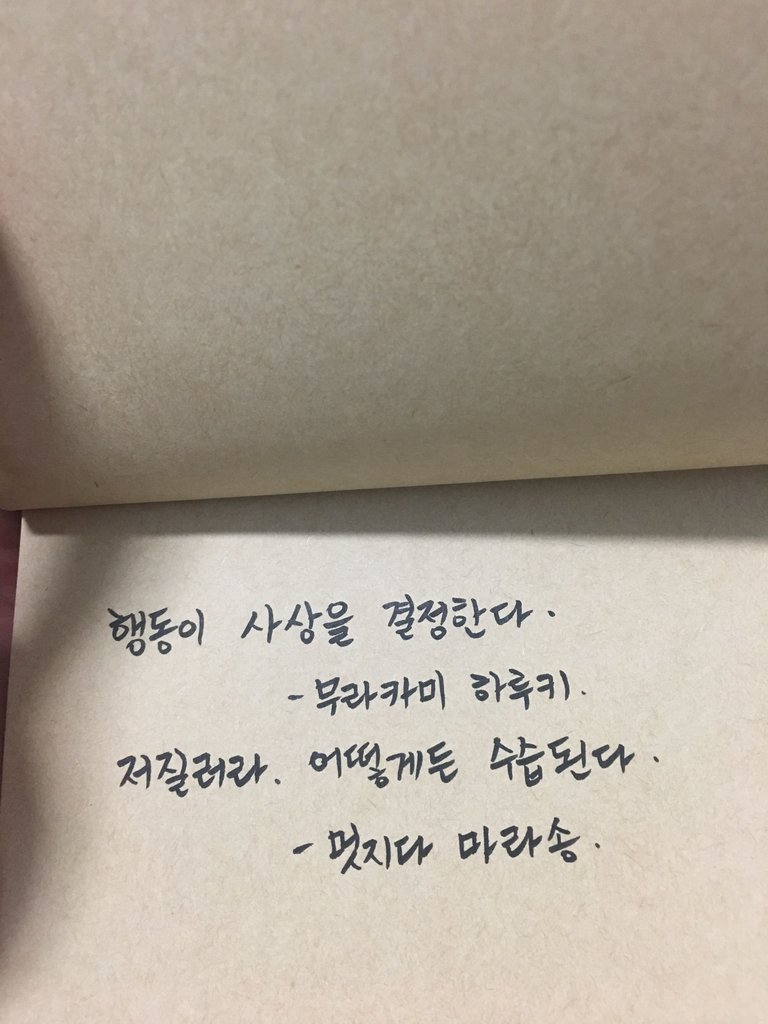 행동이 사상을 결정한다.
- 무라카미 하루키.
저질러라. 어떻게든 수습된다.
- 멋지다 마라송.